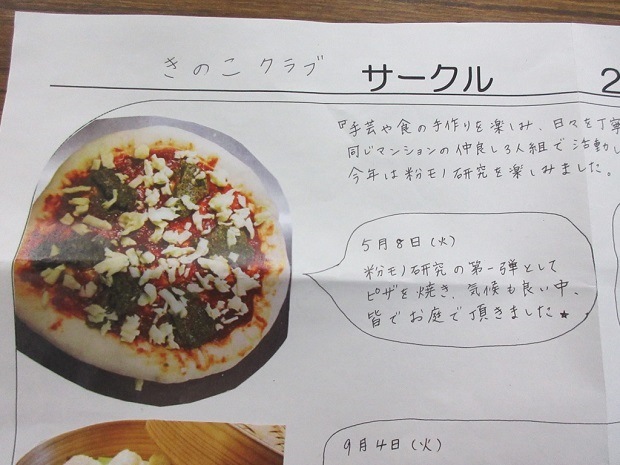 きのこクラブ サークル 2
『手芸や食の手作りを楽しみ、日々を丁寧
同じマンションの仲良し3人組で活動し
今年は粉モノ研究を楽しみました。
5月8日(火)
粉モノ研究の第一弾として
ピザを焼き、気候も良い中、
皆でお庭で頂きました★
9月4日(火)